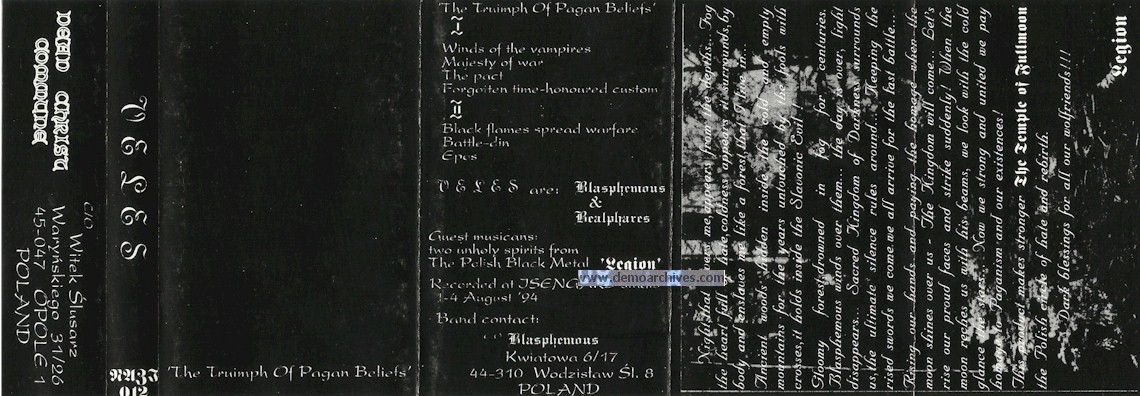 DEAD CHRIST
COMMUNE
C/O
Witek Ślusarz
Waryńskiego 31/26
45-047 OPOLE 1
POLAND
VELES
NAZI
012
'The Truimph Of Pagan Beliefs'
'The Truimph Of Pagan Beliefs'
I
Winds of the vampires
Majesty of war
The pact
Forgotten time-honoured custom
II
Black flames spread warfare
Battle-din
Epos
VELES are: Blasphemous
&
Bealphares
Guest musicans:
two unholy spirits from
The Polish Black Metal 'Legion'
Recorded at
1-4 August '94
www.demoarchives.com
Band contact:
c/o Blasphemous
Kwiatowa 6/17
44-310 Wodzisław Śl. 8
POLAND
the depths... Fog
the heart full of the coldness appears it surrounds by
body and enslaves like a forest,
Ancient woods hidden inside the cold and empty
mountains for the years untouched by the fools with
crosses, it holds inside the Slavonic Soul
Gloomy forest, drowned in fog for centuries.
Blasphemous winds over them... the day is over, light
disappears... Sacred Kingdom of Darkness surrounds
us, the ultimate silence rules around... Keeping the
rised swords we come, we all arrive for the last battle...
our hands and paying the homage when the
moon shines over us - The Kingdom will come... Let's
rise our proud faces and strike suddenly! When the
moon reetles us with his beams, we look with the cold
glance Now we strong and united we pay
homage to Paganism and our existences!
This makes stronger The Temple of Fullmoon
the Polish emire of hate and rebirth.
Dark blessings for all our wolfriends!!!
Legion